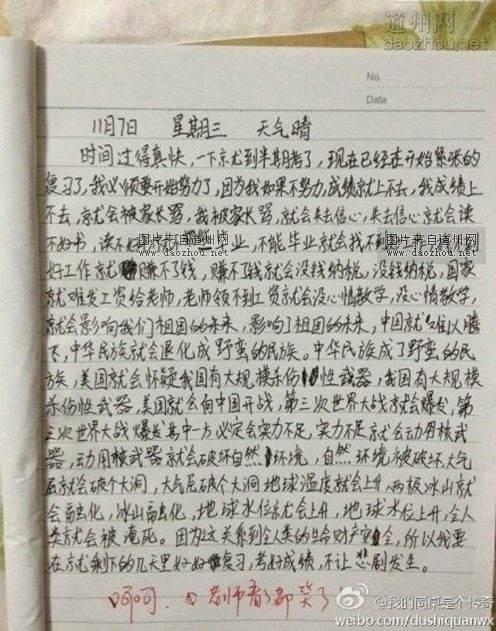 通州网
daozhou.net
No.
Data
11月7日 星期三 天气晴
时间过得真快，一下就到半期考了，现在已经在开始紧张的
复习了，我必须要开始努力了，因为我如果不努力，成绩就上不去，我成绩上
不去，就会被家长骂，我被家长骂，就会失去信心，失去信心就会读
不好书，读不好 业，不能毕业就会找不到
图片来自道州网
www.daozhou.net
图片来自道州网
www.daozhou.net
好工作就赚不了钱，赚不了钱就会没钱纳税，没钱纳税，国家
就难发工资给老师，老师领不到工资就会没心情教学，没心情教学，
就会影响我们祖国的未来，影响了祖国的未来，中国就难以腾
飞，中华民族就会退化成野蛮的民族。中华民族成了野蛮的民
族，美国就会怀疑我国有大规模杀伤性武器，我国有大规模
杀伤性武器，美国就会向中国开战，第三次世界大战就会爆发，第
三次世界大战爆发其中一方必定会实力不足，实力不足就会动用核武
器，动用核武器就会破坏自然环境，自然环境被破坏，大气
层就会破个大洞，大气层破个大洞地球温度就会上升，两极冰山就
会融化，冰山融化，地球水位就会上升，地球水位上升，全人
类就会被淹死。因为这关系到全人类的生命财产安全，所以我要
在就剩下的几天里好好复习，考好成绩，不让悲剧发生。
呵呵， 老师看了都笑了
@我的同桌是个传奇
weibo.com/dushiquanwx